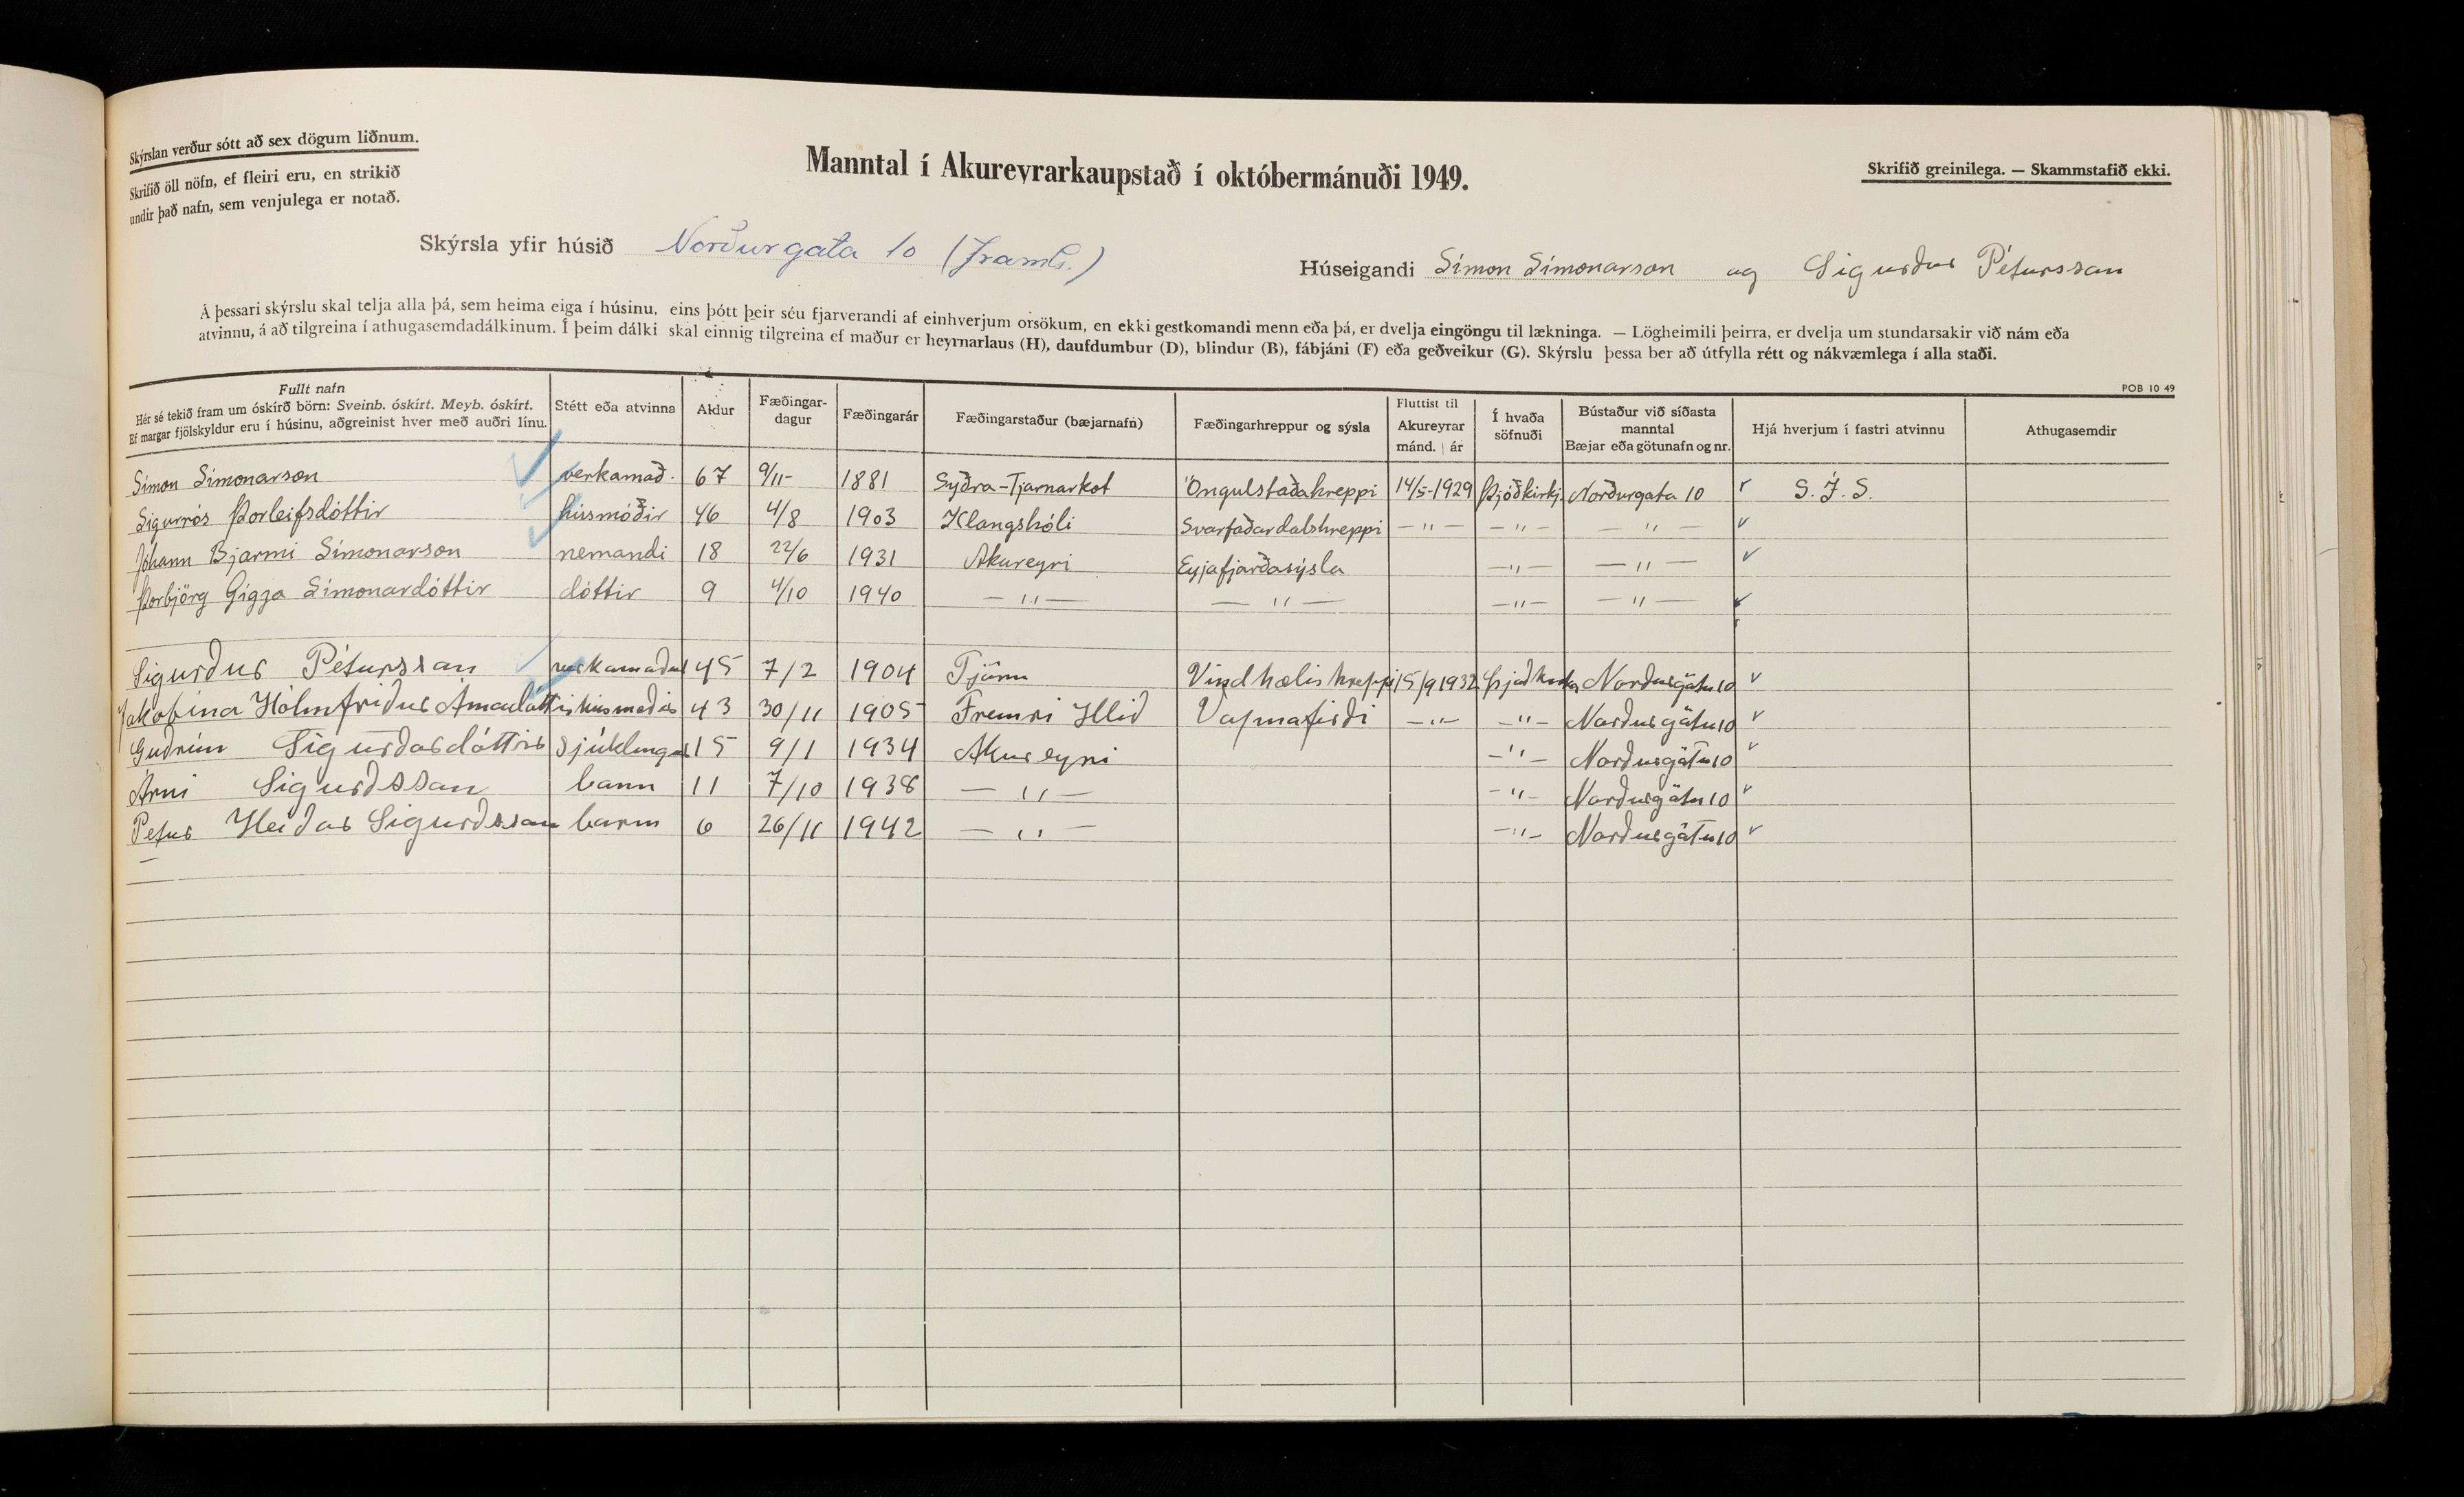 Skýrslan verður sótt að sex dögum liðnum.
Skrifið öll nöfn, ef fleiri eru, en strikið
undir það nafn, sem venjulega er notað.
Manntal í Akureyrarkaupstað í októbermánuði 1949.
Skrifið greinilega. — Skammstafið ekki.
Skýrsla yfir húsið Norðurgata 10 (framh.)
Húseigandi Símon Símonarson og Sigurður Pétursson
Á þessari skýrslu skal telja alla þá, sem heima eiga í húsinu, eins þótt þeir séu fjarverandi af einhverjum orsökum, en ekki gestkomandi menn eða þá, er dvelja eingöngu til lækninga. — Lögheimili þeirra, er dvelja um stundarsakir við nám eða
atvinnu, á að tilgreina í athugasemdadálkinum. Í þeim dálki skal einnig tilgreina ef maður er heyrnarlaus (H), daufdumbur (D), blindur (B), fábjáni (F) eða geðveikur (G). Skýrslu þessa ber að útfylla rétt og nákvæmlega í alla staði.
POB 10 49
Fullt nafn
Hér sé tekið fram um óskírð börn: Sveinb. óskírt. Meyb. óskírt.
Ef margar fjölskyldur eru í húsinu, aðgreinist hver með auðri línu.
Stétt eða atvinna
Aldur
Fæðingar-
dagur
Fæðingarár
Fæðingarstaður (bæjarnafn)
Fæðingarhreppur og sýsla
Fluttist til
Akureyrar
mánd. | ár
Í hvaða
söfnuði
Bústaður við síðasta
manntal
Bæjar eða götunafn og nr.
Hjá hverjum í fastri atvinnu
Athugasemdir
Símon Símonarson verkamað. 67 9/11- 1881 Syðra-Tjarnarkot Öngulstaðahreppi 14/5-1929 Þjóðkirkj. Norðurgata 10 S.Í.S.
Sigurrós Þorleifsdóttir húsmóðir 46 4/8 1903 Klængshóli Svarfaðardalshreppi —"— —"— —"—
Jóhann Bjarmi Símonarson nemandi 18 22/6 1931 Akureyri Eyjafjarðasýsla —"— —"—
Þorbjörg Gígja Símonardóttir dóttir 9 4/10 1940 —"— —"— —"— —"—
Sigurður Pétursson verkamaður 45 7/2 1904 Tjörn Vindhælishreppi 15/9 1932 Norðurgötu 10
Jakobína Hólmfríður Árnadóttir húsmóðir 43 30/11 1905 Fremri Hlíð Vopnafirði —"— —"— Norðurgötu 10
Guðrún Sigurðardóttir Sjúklingur 15 9/1 1934 Akureyri —"— Norðurgötu 10
Árni Sigurðsson barn 11 7/10 1938 —"— —"— Norðurgötu 10
Petur Heiðar Sigurðsson barn 6 26/11 1942 —"— —"— Norðurgötu 10